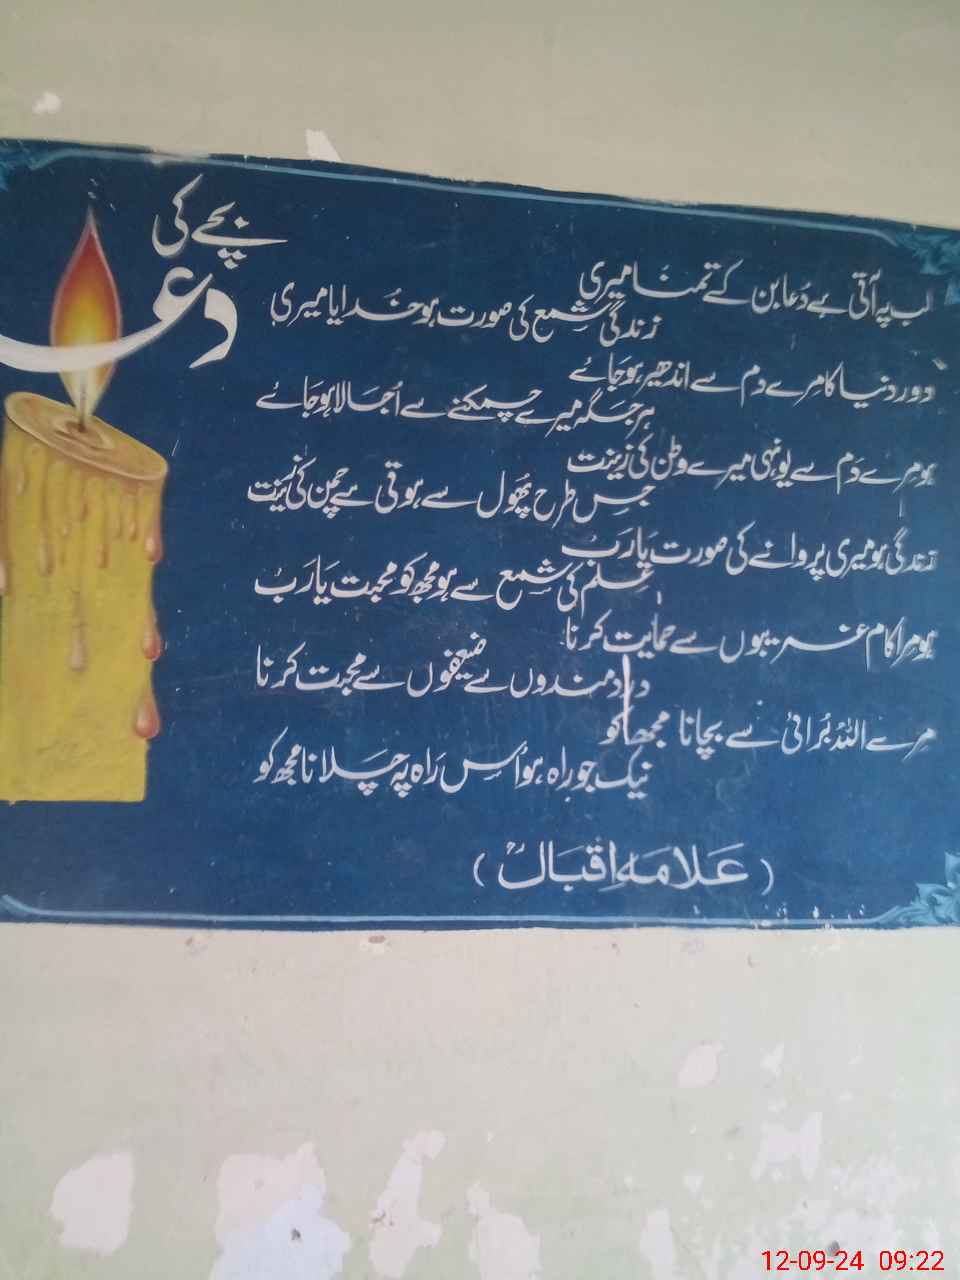 بچے کی
دعا
لب پہ آتی ہے دُعا بن کے تمنا میری
زندگی شمع کی صورت ہو خُدایا میری
دور دنیا کا مِرے دم سے اندھیر ہو جائے
ہر جگہ میرے چمکنے سے اُجالا ہو جائے
ہو مِرے دَم سے یونہی میرے وطن کی زِینت
جس طرح پھُول سے ہوتی ہے چمن کی زینت
زندگی ہو میری پروانے کی صورت یَا رَب
عِلم کی شمع سے ہو مجھ کو محبت یَا رَب
ہو مِرا کام غریبوں سے حمایت کرنا
دردمندوں سے ضعیفوں سے محبت کرنا
مِرے اللہ بُرائی سے بچانا مجھ کو
نیک جو راہ ہو اُس رَاہ پہ چلانا مجھ کو
(عَلامَہ اِقبَالؒ)
12-09-24 09:22